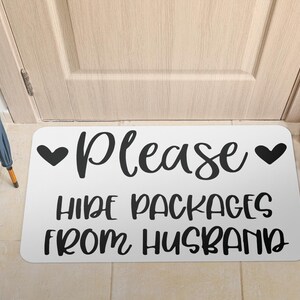 Please
HIDE PACKAGES
FROM HUSBAND